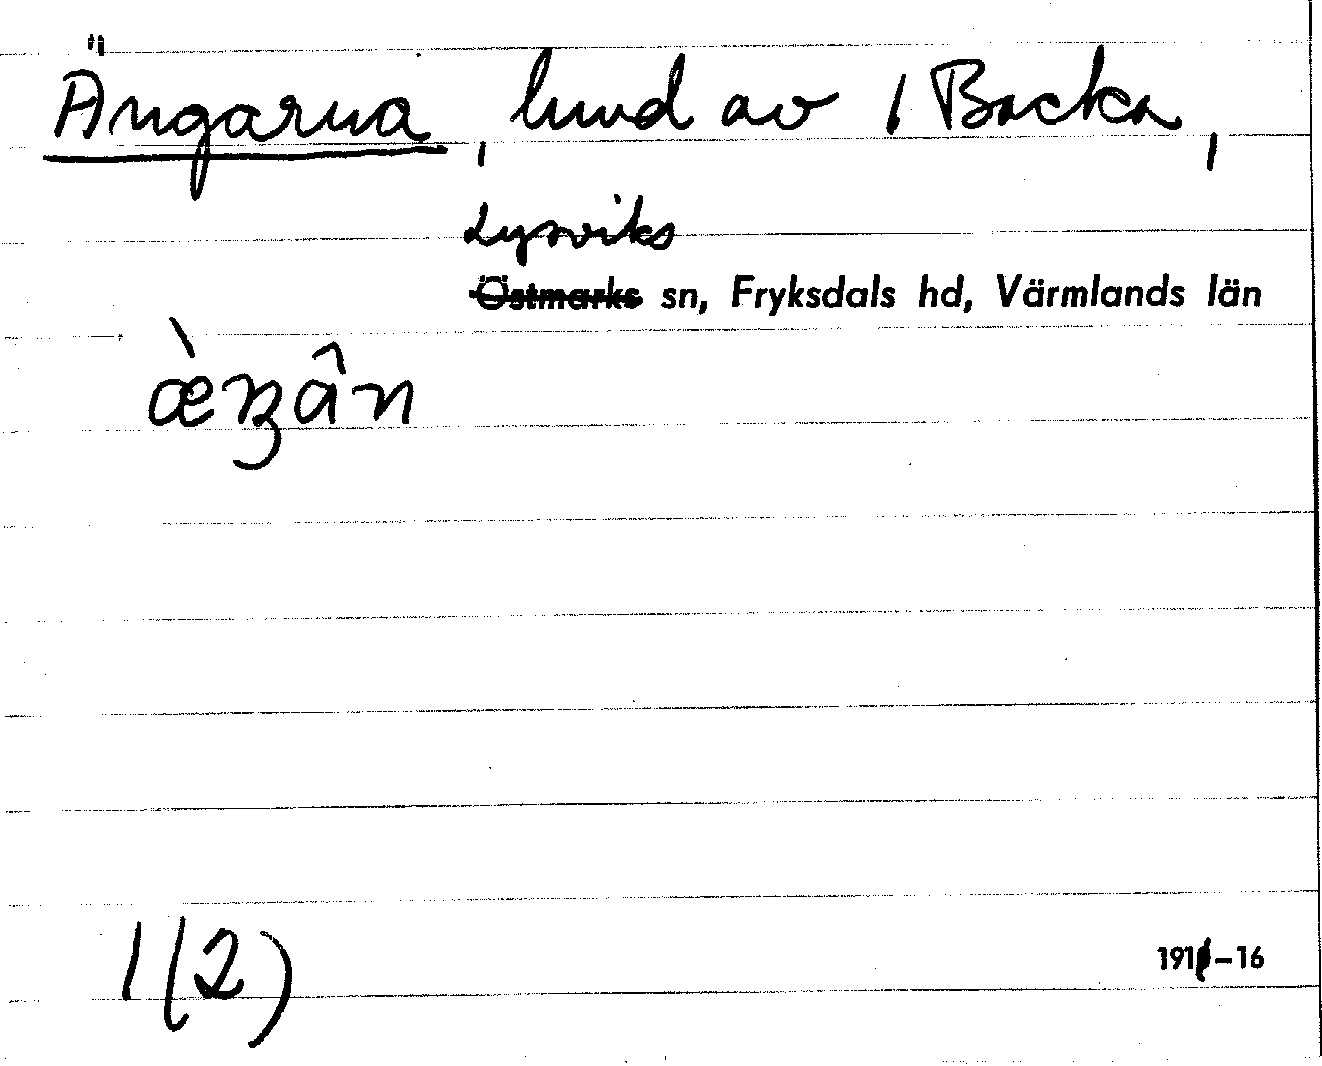 Ängarna, lund av 1 Backa,
Lysviks
Östmarks sn, Fryksdals hd, Värmlands län
1(2)